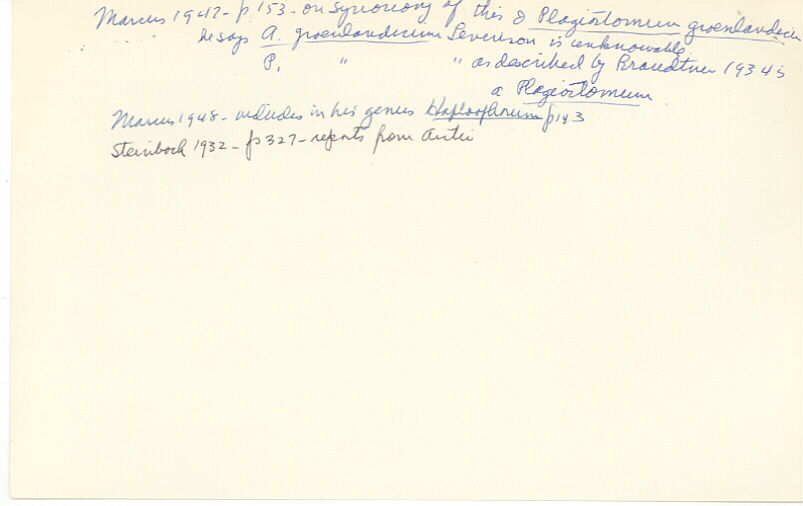 Marcus 1947 - p 153 - on synonomy of this & Plagiostomum groenlandicum
he says A. groenlandicum Levinson is unknowable
P. " " as described by Brandtner 1934 is
a Plagiostomum
Marcus 1948 - includes in his genus p 143
Steinbock 1932 - p 327 - reports from